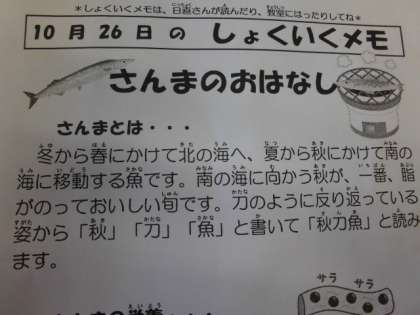 ＊しょくいくメモは、日直さんが読んだり、教室にはったりしてね＊
10月26日の しょくいくメモ
さんまのおはなし
さんまとは・・・
冬から春にかけて北の海へ、夏から秋にかけて南の
海に移動する魚です。南の海に向かう秋が、一番、脂
がのっておいしい旬です。刀のように反り返っている
姿から「秋」「刀」「魚」と書いて「秋刀魚」と読み
ます。
サラ
サラ